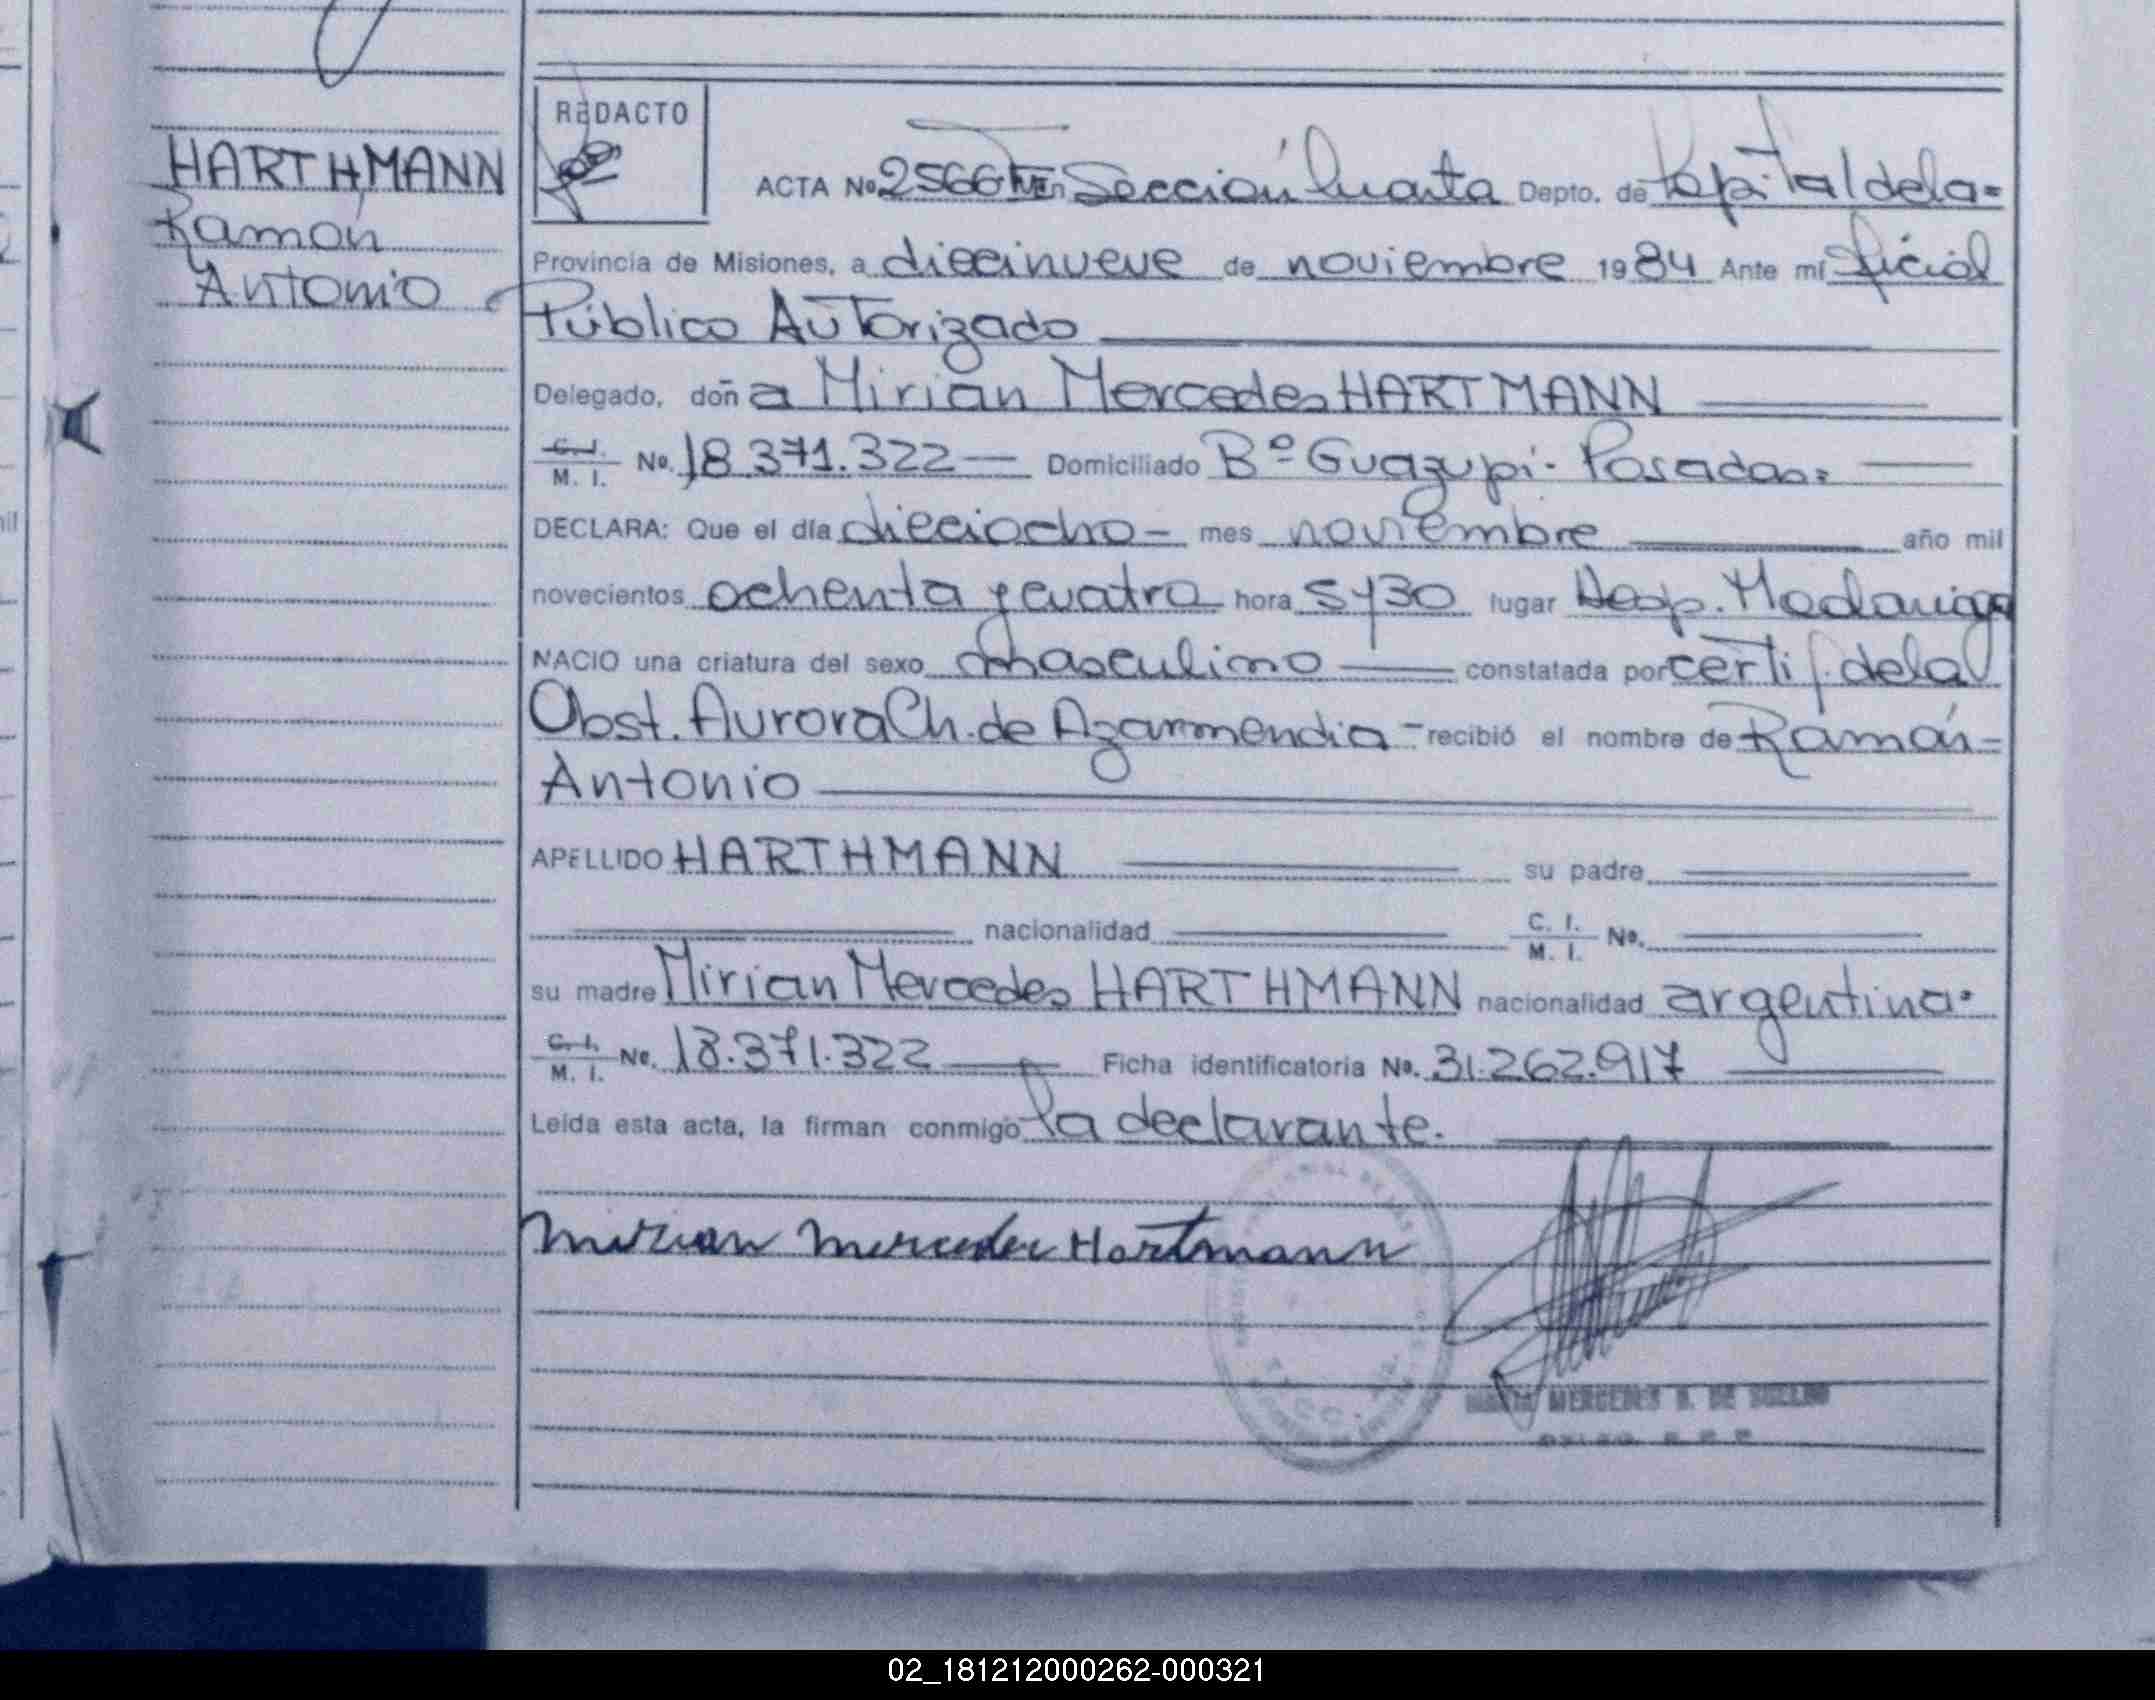 HARTHMANN
Ramón
Antonio
REDACTO
ACTA No 2566 TVE En Sección Cuarta Depto. de Capital de la=
Provincia de Misiones, a diecinueve de noviembre 1984 Ante mí Oficial
Público Autorizado
Delegado, doña Mirian Mercedes HARTMANN
C. I. / M. I. No. 18.371.322 — Domiciliado Bº Guazupi - Posadas=
DECLARA: Que el día dieciocho - mes noviembre año mil
novecientos ochenta y cuatro hora 5 y 30 lugar Hosp. Madariaga
NACIO una criatura del sexo masculino constatada por certif. de la
Obst. Aurora Ch. de Azarmendia - recibió el nombre de Ramón -
Antonio
APELLIDO HARTHMANN su padre
nacionalidad C. I. / M. I. No.
su madre Mirian Mercedes HARTHMANN nacionalidad argentina.
C. I. / M. I. No. 18.371.322 Ficha identificatoria No. 31.262.917
Leída esta acta, la firman conmigo la declarante.
Mirian Mercedes Hartmann
MERCEDES DE
02_181212000262-000321